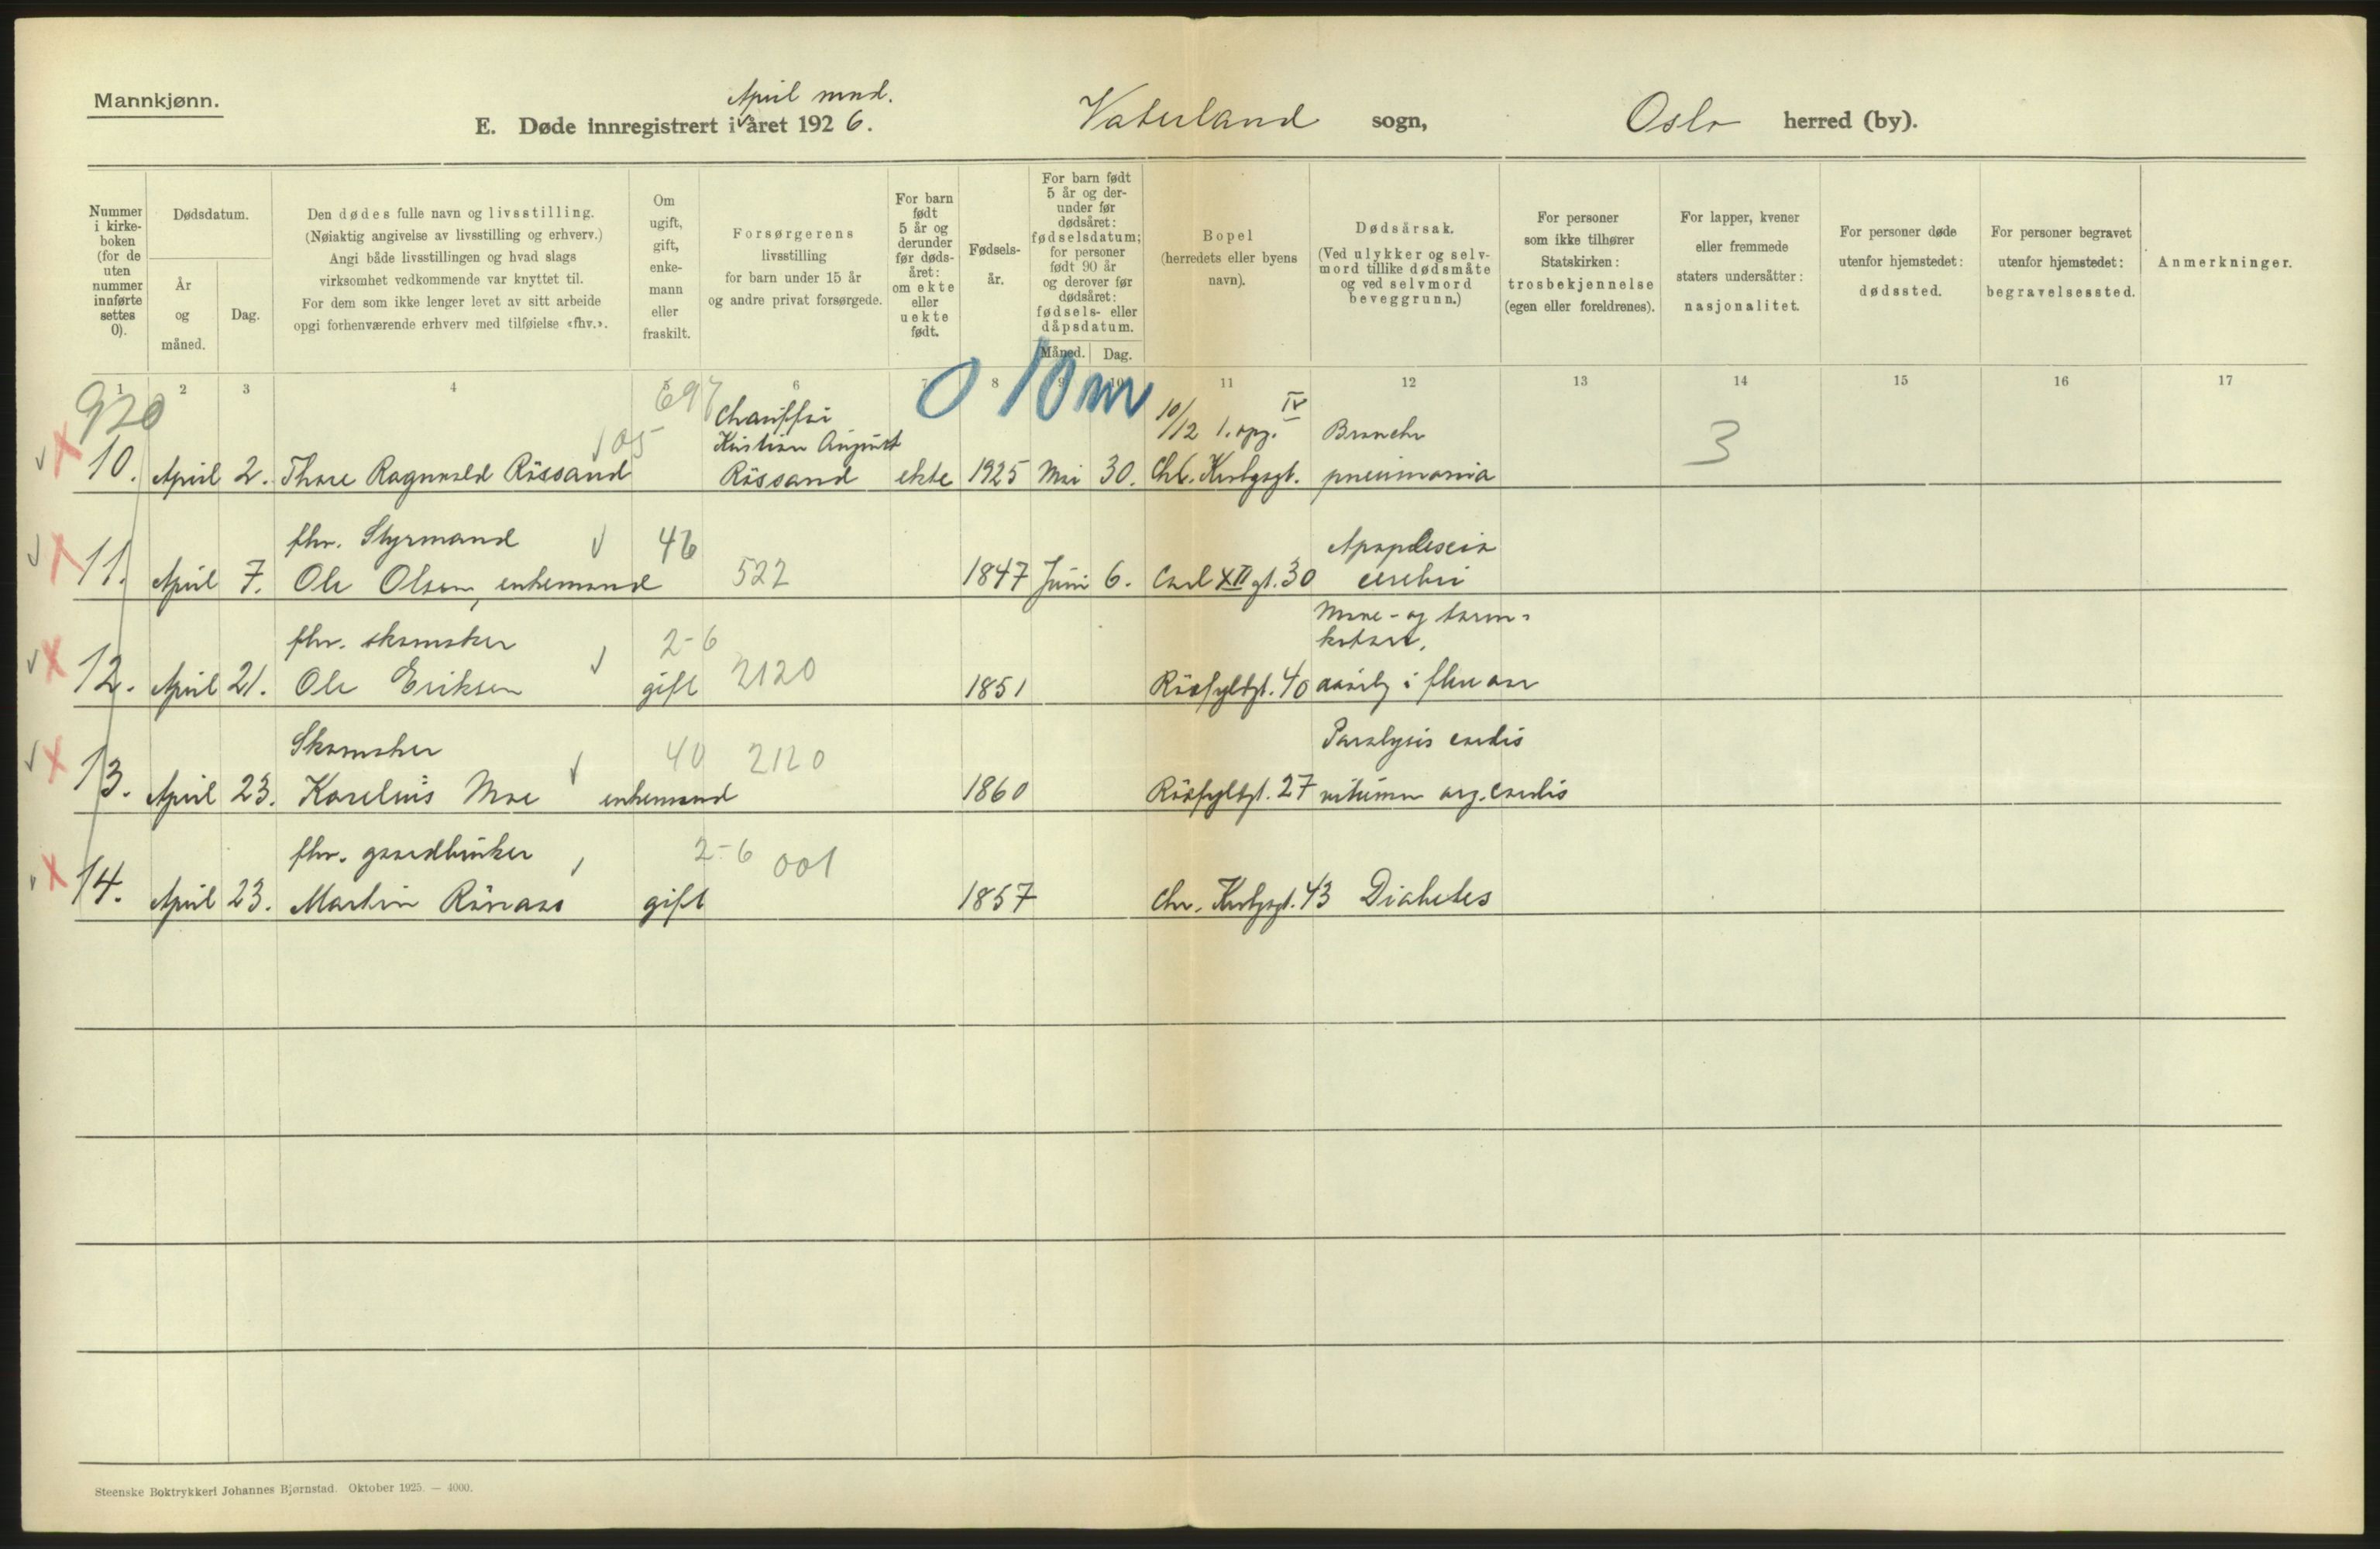 Mannkjønn.
April mnd.
E. Døde innregistrert i året 1926.
Vaterland sogn,
Oslo herred (by).
Nummer i kirke-boken (for de uten nummer innførte settes 0).
Dødsdatum.
År og måned.
Dag.
Den dødes fulle navn og livsstilling.
(Nøiaktig angivelse av livsstilling og erhverv.)
Angi både livsstillingen og hvad slags
virksomhet vedkommende var knyttet til.
For dem som ikke lenger levet av sitt arbeide
opgi forhenværende erhverv med tilføielse «fhv.».
Om ugift, gift, enke-mann eller fraskilt.
Forsørgerens
livsstilling
for barn under 15 år
og andre privat forsørgede.
For barn født 5 år og derunder før døds-året: om ekte eller uekte født.
Fødsels-år.
For barn født 5 år og der-under før dødsåret: fødselsdatum; for personer født 90 år og derover før dødsåret: fødsels- eller dåpsdatum.
Måned.
Dag.
Bopel
(herredets eller byens
navn).
Dødsårsak.
(Ved ulykker og selv-
mord tillike dødsmåte
og ved selvmord
beveggrunn.)
For personer
som ikke tilhører
Statskirken:
trosbekjennelse
(egen eller foreldrenes).
For lapper, kvener
eller fremmede
staters undersåtter:
nasjonalitet.
For personer døde
utenfor hjemstedet:
dødssted.
For personer begravet
utenfor hjemstedet:
begravelsessted.
Anmerkninger.
1 2 3 4 5 6 7 8 9 10 11 12 13 14 15 16 17
920
697
0 10 m
105
Chauffør
Kristian August
10/12 1. opg. IV
Broncho
3
10. April 2. Thore Ragnvald Røssand Røssand ekte 1925 Mai 30. Chr. Krohgsgt. pneumonia
fhv. Styrmand 46
Apoplexia
11. April 7. Ole Olsen, enkemand 522 1847 Juni 6. Carl XII gt. 30 cerebri
Mave- og tarm-
katarr.
fhv. skomaker 2-6
12. April 21. Ole Eriksen gift 2120 1851 Rødfyldgt. 40
Skomaker 40 2120
Paralysis cordis
13. April 23. Karelius Moe enkemand 1860 Rødfyldgt. 27 vitium org. cordis
fhv. gaardbruker 2-6 001
14. April 23. Martin gift 1857 Chr. Krohgsgt. 43 Diabetes
Steenske Boktrykkeri Johannes Bjørnstad. Oktober 1925. — 4000.